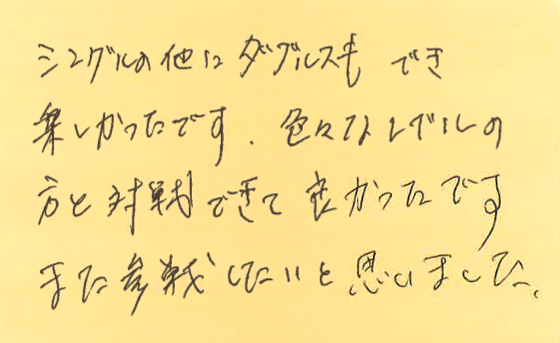 シングルの他にダブルスも でき
楽しかったです. 色々なレベルの
方と対戦できて良かったです
また参戦したいと思いました.